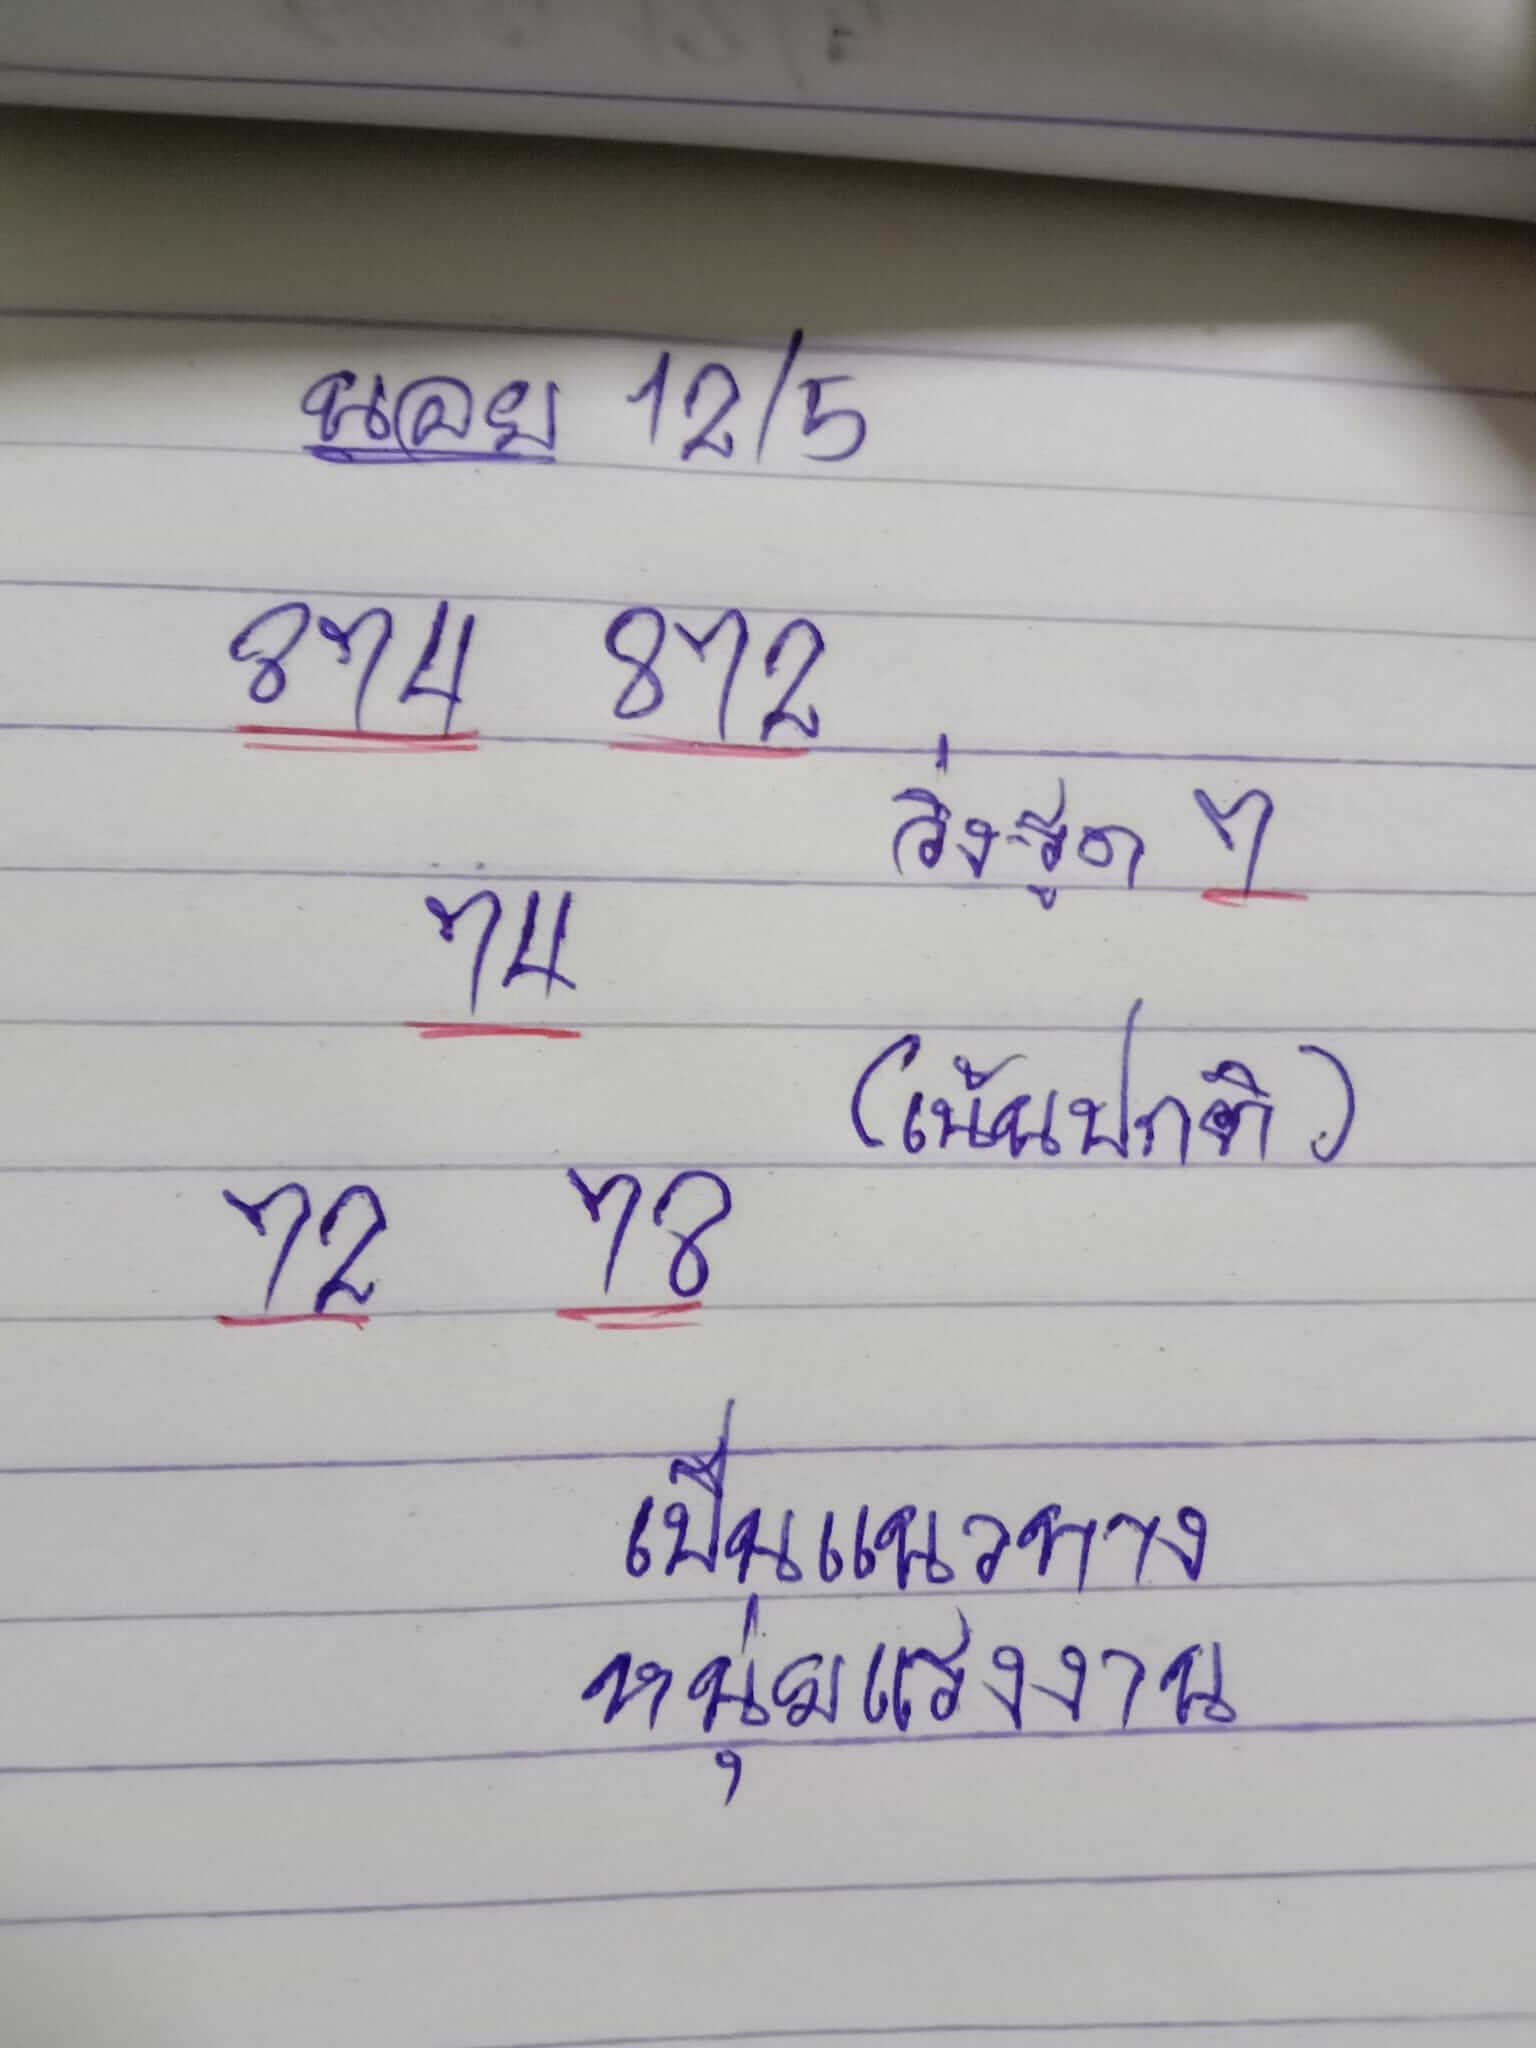 นอย 12/5
874 872
วิ่งรูด 7
74
(เน้นปกติ)
72 78
เป็นแนวทาง
หนุ่มแรงงาน